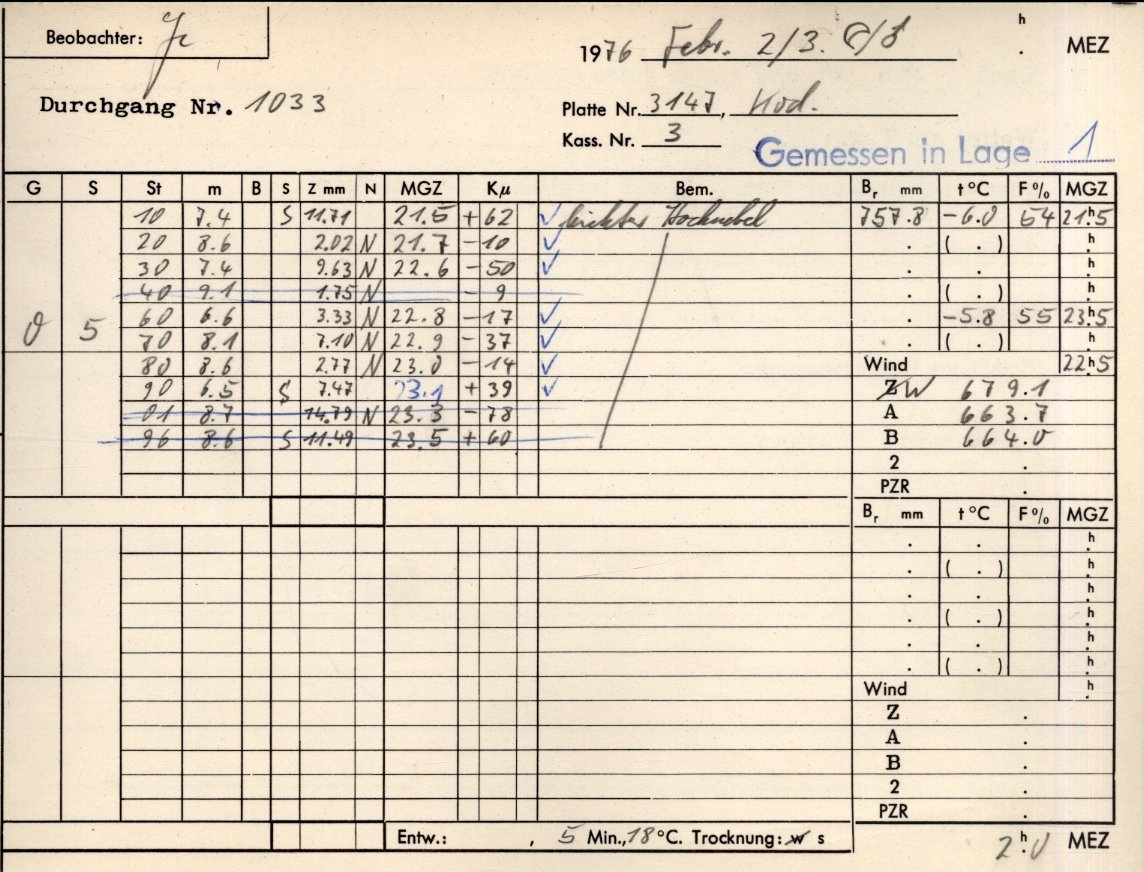 Beobachter:
h
1976 Febr. 2/3. . MEZ
Durchgang Nr. 1033
Platte Nr. 3147, Kod.
Kass. Nr. 3
Gemessen in Lage 1
G S St m B S Z mm N MGZ Kμ Bem. Br mm t °C F % MGZ
10 7.4 S 11.71 21.5 +62 leichter Hochnebel 757.8 -6.0 54 21h5
20 8.6 2.02 N 21.7 -10 . ( . ) h
30 7.4 9.63 N 22.6 -50 . . h
40 9.1 1.75 N - 9 . ( . ) h
0 5 60 6.6 3.33 N 22.8 -17 . -5.8 55 23h5
70 8.1 7.10 N 22.9 -37 . ( . ) h
80 8.6 2.77 N 23.0 -14 Wind 22h5
90 6.5 S 7.47 23.1 +39 Z W 679.1
01 8.7 14.79 N 23.3 -78 A 663.7
96 8.6 S 11.49 23.5 +60 B 664.0
2 .
PZR .
Br mm t °C F % MGZ
. . h
. ( . ) h
. . h
. ( . ) h
. . h
. ( . ) h
Wind h
Z .
A .
B .
2 .
PZR .
Entw.: , 5 Min., 18 °C. Trocknung: w s
2h.0 MEZ